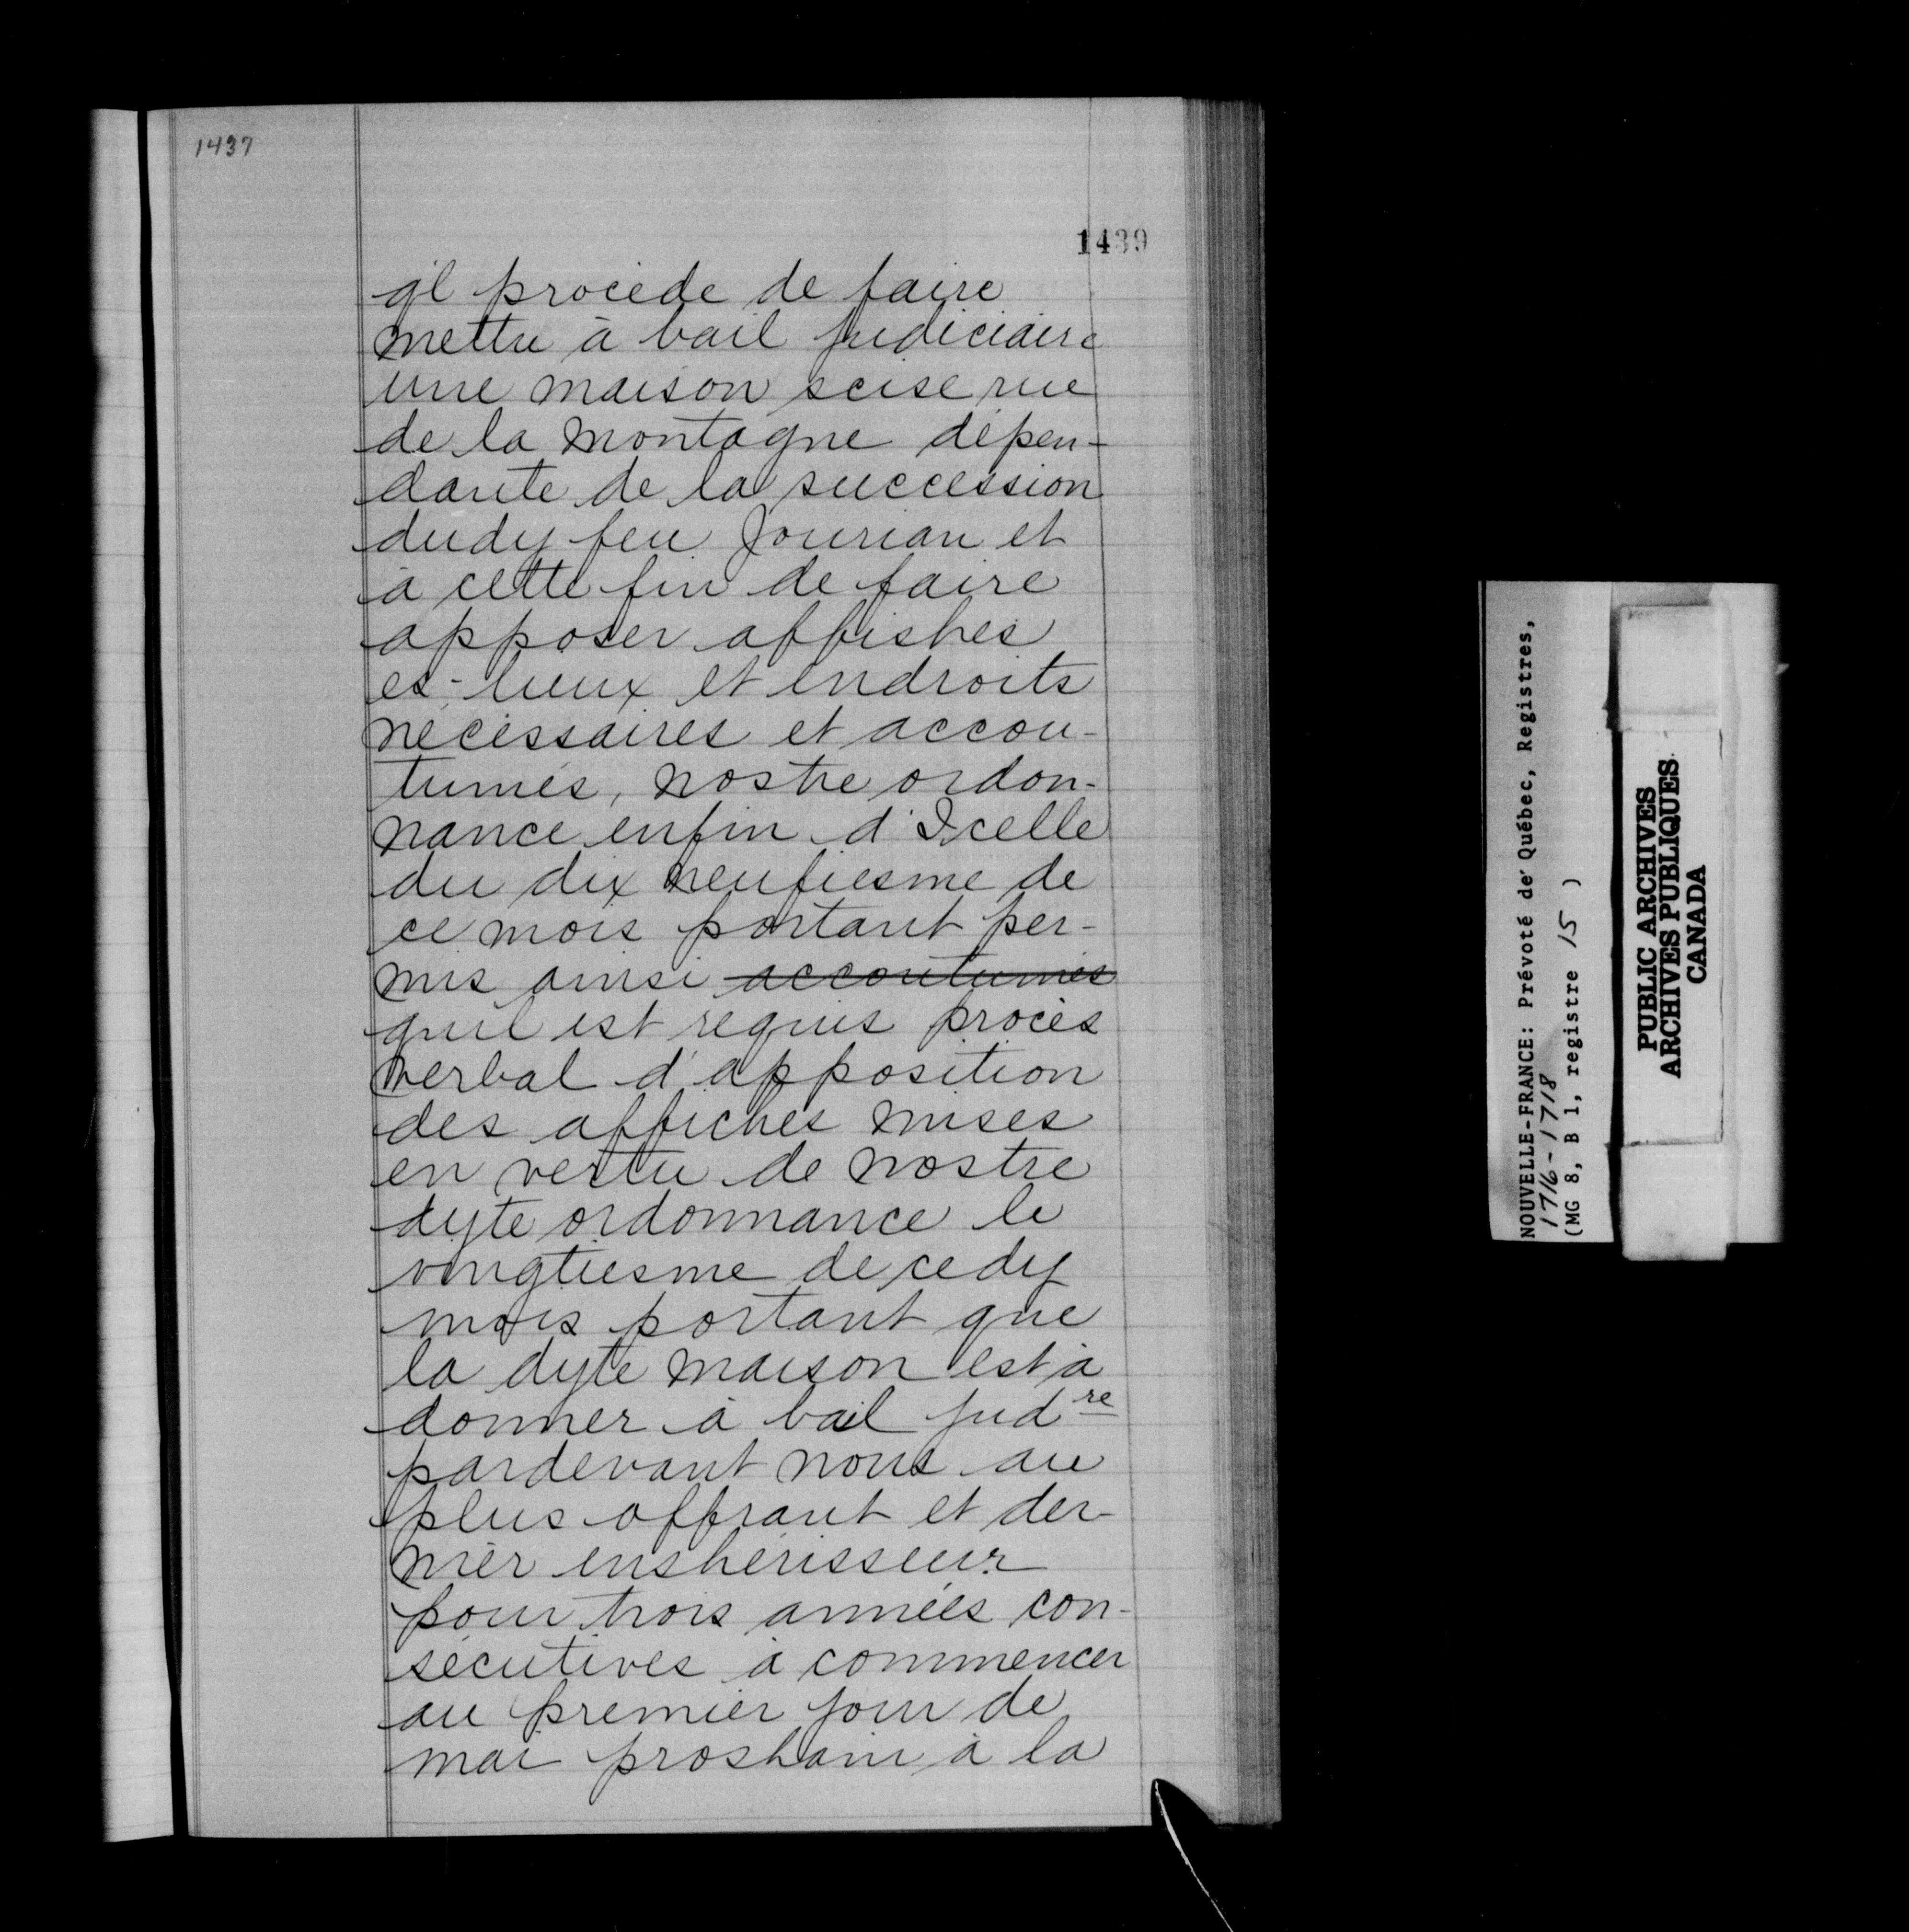 1437
1439
q'l procède de faire
mettre à bail judiciaire
une maison scise rue
de la montagne dépen-
dante de la succession
dudy feu Jourian et
à cette fin de faire
apposer affishes
es-lieux et endroits
nécessaires et accou-
tumés, nostre ordon-
nance enfin d'Icelle
du dix neufiesme de
ce mois portant per-
mis ainsi accoutumés
quil est requis procès
verbal d'apposition
des affiches mises
en vertu de nostre
dyte ordonnance le
vingtiesme de cedy
mois portant que
la dyte maison est à
donner à bail judre
pardevant nous au
plus offrant et der-
nier enshérisseur
pour trois années con-
sécutives à commencer
au premier jour de
mai proshain à la
NOUVELLE-FRANCE: Prévoté de Québec, Registres,
1716-1718
(MG 8, B 1, registre 15 )
PUBLIC ARCHIVES
ARCHIVES PUBLIQUES
CANADA